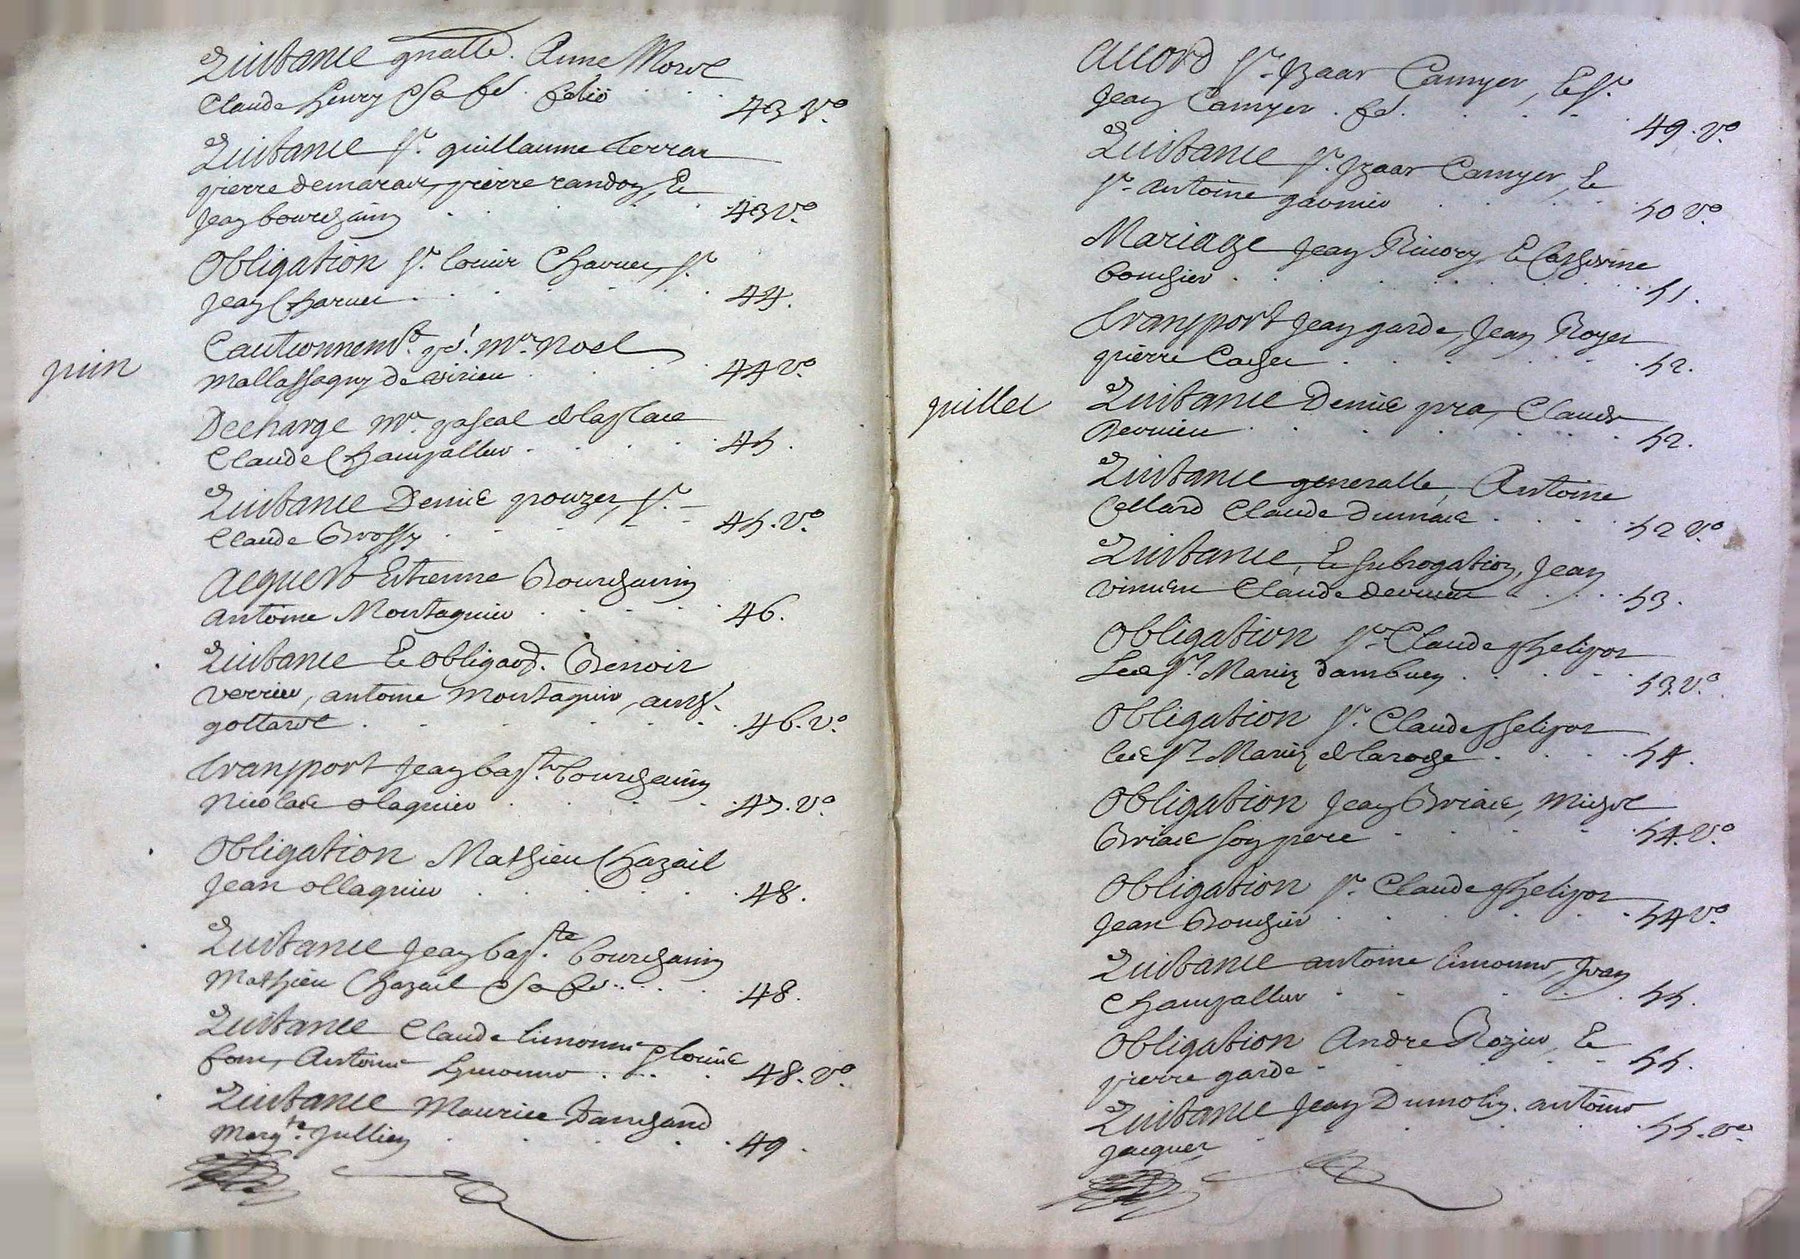 Quittance gnalle. Anne Morel
Claude henry
43 V°.
Quittance Sr. guillaume terrar
pierre demarar, pierre randon, Et
Jean bourchanin . . . . 43 V°.
Obligation Sr. louis Charuer, Sr.
Jean Charuer . . . . 44.
juin
Cautionnemt. Mr. Noel
de virieu . . . . 44 V°.
Decharge Mr. pascal delaplace
Claude Champallier . . . . 45.
Quittance Denis pouzer, Sr.
Claude Brossy . . . . 45. V°.
Acquest Estienne Bourchanin
antoine Montagnier . . . . 46.
Quittance Et obligaon. Benoit
Verrier, antoine Montagnier,
gottarel . . . . 46. V°.
Transport Jean bapte. bourchanin
Nicolas olagnier . . . . 47. V°.
Obligation Mathieu Chazail
Jean ollagnier . . . . 48.
Quittance Jean bapte. bourchanin
Mathieu Chazail . . . . 48.
Quittance Claude limonne, louise
Antoine . . . . 48. V°.
Quittance Maurice
Margte. Jullien . . . . 49.
Accord Sr. Izaac Camyer, Et Sr.
Jean Camyer . . . . 49. V°.
Quittance Sr. Izaac Camyer, Et
Sr. Antoine garnier . . . . 50 V°.
Mariage Jean Rivory, Et Catherine
bouchier . . . . 51.
Transport Jean garde, Jean Royer
pierre Cachet . . . . 52.
juillet
Quittance Denis pra, Claude
Bernieu . . . . 52.
Quittance generalle, Antoine
Collard Claude Dumas . . . . 52 V°.
Quittance, Et subrogation, Jean
Claude . . . . 53.
Obligation Sr. Claude phelipot
Led Sr. Marin dambuen . . . . 53. V°.
Obligation Sr. Claude phelipot
Led Sr. Marin delaroche . . . . 54.
Obligation Jean Briase, Michel
Briase son pere . . . . 54. V°.
Obligation Sr. Claude phelipot
Jean Bouchier . . . . 54 V°.
Quittance antoine limonne, Jean
Champallier . . . . 55.
Obligation Andre Rozier, Et
pierre garde . . . . 55.
Quittance Jean Dumolin. antoine
Jacquet . . . . 55. V°.